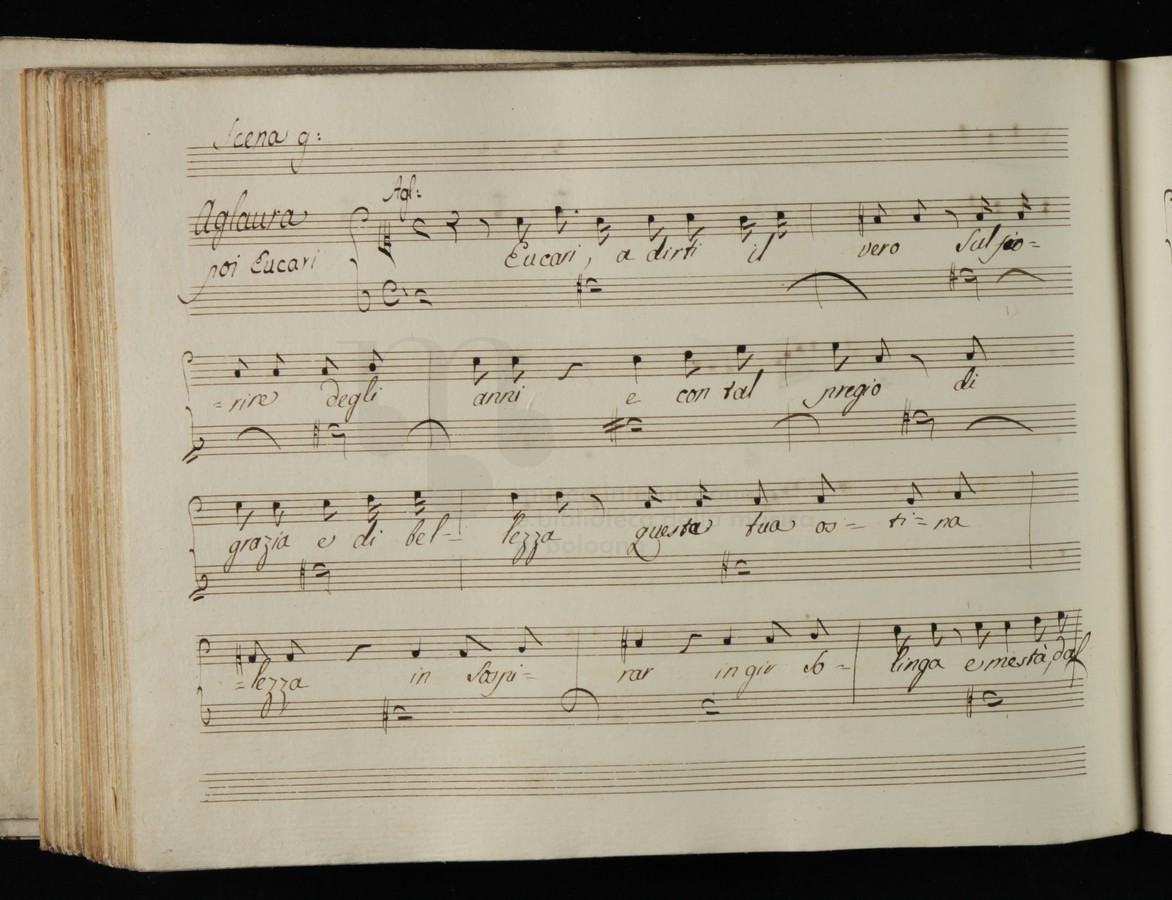 Scena 9:
Agl:
Aglaura
poi Eucari
Eucari, a dirti il vero sul fio=
=rire degli anni e con tal pregio di
grazia e di bel= lezza questa tua os= ti=na
=lezza in sospi= rar in gir so= linga e mestà dal